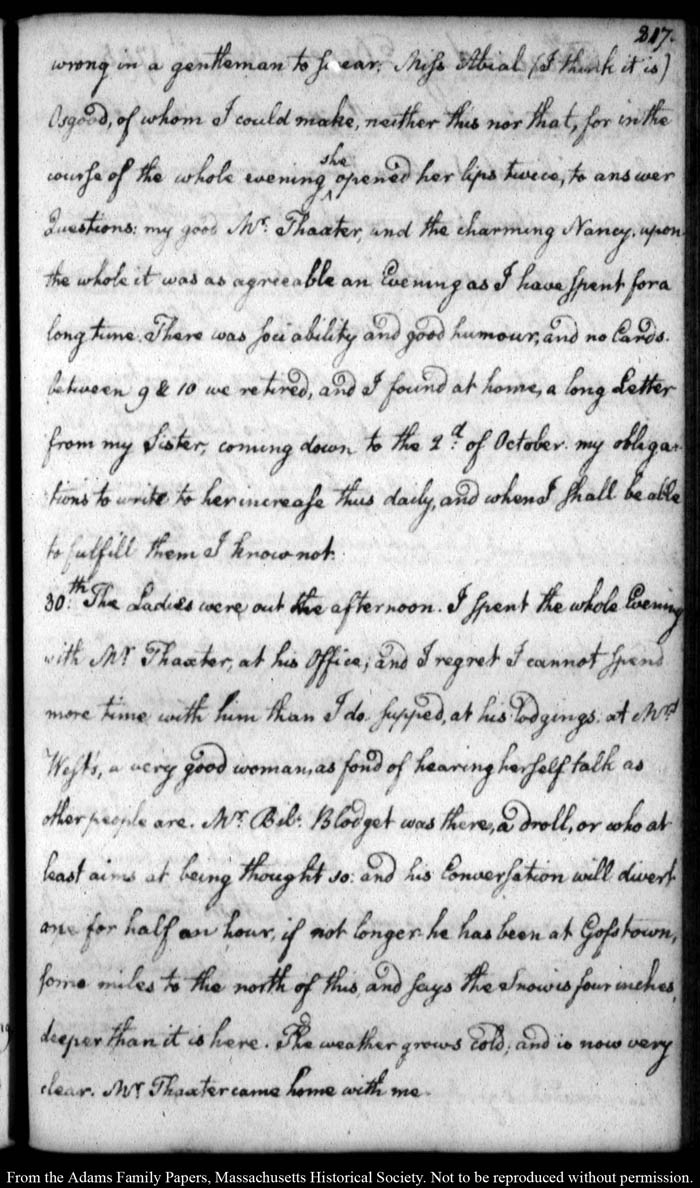 217.
wrong in a gentleman to swear; Miss Abial (I think it is)
Osgood, of whom I could make, neither this nor that, for in the
course of the whole evening she open'd her lips twice, to answer
Questions: my good Mr. Thaxter, and the charming Nancy. upon
the whole it was as agreeable an Evening as I have spent for a
long time. There was sociability and good humour, and no Cards.
between 9 & 10 we retired, and I found at home, a long Letter
from my Sister, coming down to the 2d. of October. my obliga-
tions to write to her increase thus daily, and when I shall be able
to fulfill them I know not.
30th. The Ladies were out the afternoon. I spent the whole Evening
with Mr Thaxter, at his Office; and I regret I cannot spend
more time with him than I do. supped, at his lodgings. at Mrs
West's, a very good woman, as fond of hearing herself talk as
other people are. Mr. Bib. Blodget was there, a droll, or who at
least aims at being thought so: and his Conversation will divert
one for half an hour, if not longer. he has been at Gofstown,
some miles to the north of this, and says the Snow is four inches,
deeper than it is here. The weather grows cold; and is now very
clear. Mr Thaxter came home with me.
From the Adams Family Papers, Massachusetts Historical Society. Not to be reproduced without permission.